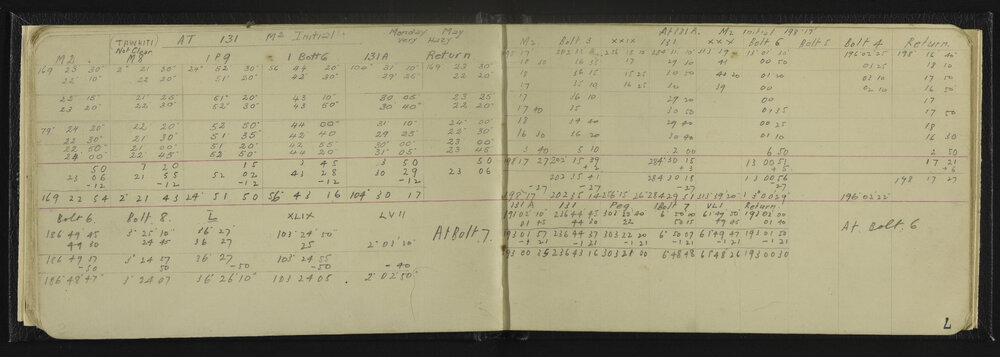 (TAWHITI) AT 131 M2 Initial Monday May
Not Clear very Hazy
M2. M8 1 Pg 1 Bolt 6 131A Return
169 23 30" 2° 21 30" 24° 52 30" 56 44 20" 100° 31 10" 169 23 30"
22 10" 22 20 51 20" 42 30" 29' 25" 22 20
23 15" 21 25" 51' 20" 43 10" 30 05" 23 25
23 20" 22 30" 52' 30" 43 50" 30' 40" 22 20"
79° 24 20" 22 20" 52 50" 44 00" 31 10" 24 00"
22 30" 21 30" 51 35" 42 40 29 25" 22 30"
22 50" 21 00" 51 20" 42 55" 30 00" 23 45
24 00" 22 45 52 50" 44 20" 31 05"
50 7 20 15 3 45 3 50 50
23 06 21 55 52 02 43 28 30 29 23 06
-12 -12 -12 -12
169 22 54 2° 21 43 24° 51 50 56° 43 16 104° 30 17
Bolt 6. Bolt 8. L XLIX LVII
186° 49 45 3° 25' 10" 36° 27' 103° 24' 50"
44 30 24 45 36 27 25 2° 03' 30"
At Bolt 7.
186° 49 37 3° 24 57 36° 27' 103° 24 55
-50 50 -50 -50 -40
186° 48' 47" 3° 24 07 36° 26' 10" 103° 24 05 2° 02' 50"
At 131 A. M2 Initial 198° 17'
M2 Bolt 3 XXIX 131 XXX Bolt 6 Bolt 5 Bolt 4 Return
18 36 35 29 10 41 00 50 03 25 18 10
18 36 15 15 25 30 50 40 20 01 20 03 10 17 50
17 35 10 16 25 30 39 00 02 10 16 50
17 36 10 29 20 00 17
17 40 35 30 50 01 35 17 50
18 34 40 29 40 00 25 18
16 30 16 20 30 40 01 10 16 30
3 40 5 10 2 00 6 50 2 50
284° 30 15 13 00 51 17 21
+3 +5 +6
202 35 41 284 30 18 13 00 56 198 17 27
-27 -27 -27 -27
198° 17' 202 35 14 256 15 26 284 29 51 313 39 20 13° 00 29 196° 02' 22"
131 A 131 Peg 1 Bolt 7 VLI Return
191 02 10" 236 44 45 303 22 40 6° 50 00 61 49 50 193 02 00
01 45 44 30 22 50 15 49 45 01 40
193 01 57 236 44 37 303 22 20 6° 50 07 65 49 47 193 01 50
-1 21 -1 21 -1 21 -1 21 -1 21 -1 21
193 00 36 236 43 16 303 21 00 6° 48 48 65 48 26 193 00 30
At Bolt. 6
L